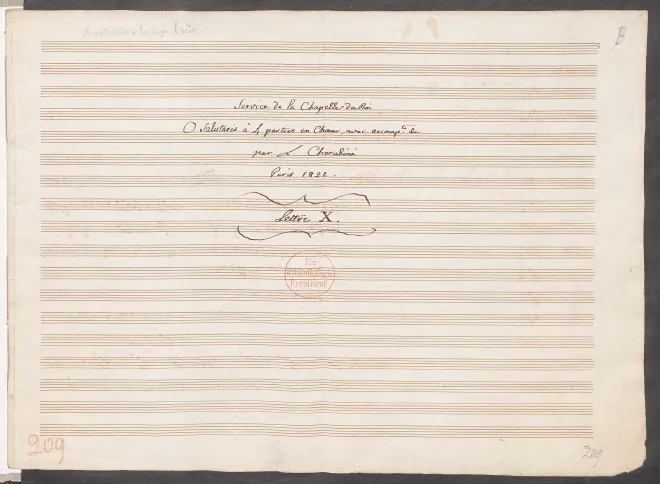 Service de la Chapelle du Roi
O Salutaris à 4 parties en Chœur, avec accompt. de
par L. Cherubini
Paris 182
Lettre X.
Ex
Biblioth
209
209